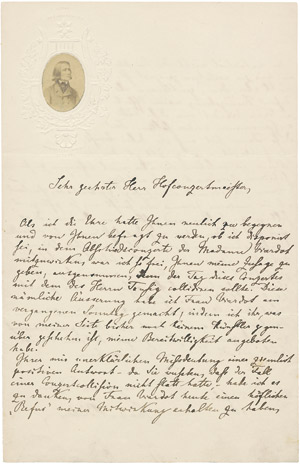 Sehr geehrter Herr Hofconzertmeister,
Als ich die Ehre hatte Ihnen neulich zu begegnen
und von Ihnen befragt zu werden, ob ich disponirt
sei, in dem Abschiedsconzerte der Madame Viardot
mitzuwirken, war ich so frei, Ihnen meine Zusage zu
geben, ausgenommen, wenn der Tag dieses Conzertes
mit dem des Herrn Tausig collidiren sollte. Diese
mündliche Äusserung habe ich Frau Viardot am
vergangenen Sonntag gemacht, indem ich ihr, was
von meiner Seite bisher noch keinem Künstler gegen-
über geschehen ist, meine Bereitwilligkeit angeboten
habe.
Ihrer mir unerklärlichen Missdeutung einer ziemlich
positiven Antwort - da Sie wussten, dass der Fall
einer Conzertcollision nicht statt hatte, - habe ich es
zu danken, von Frau Viardot heute einen höflichen
"Refus" meiner Mitwirkung erhalten zu haben,